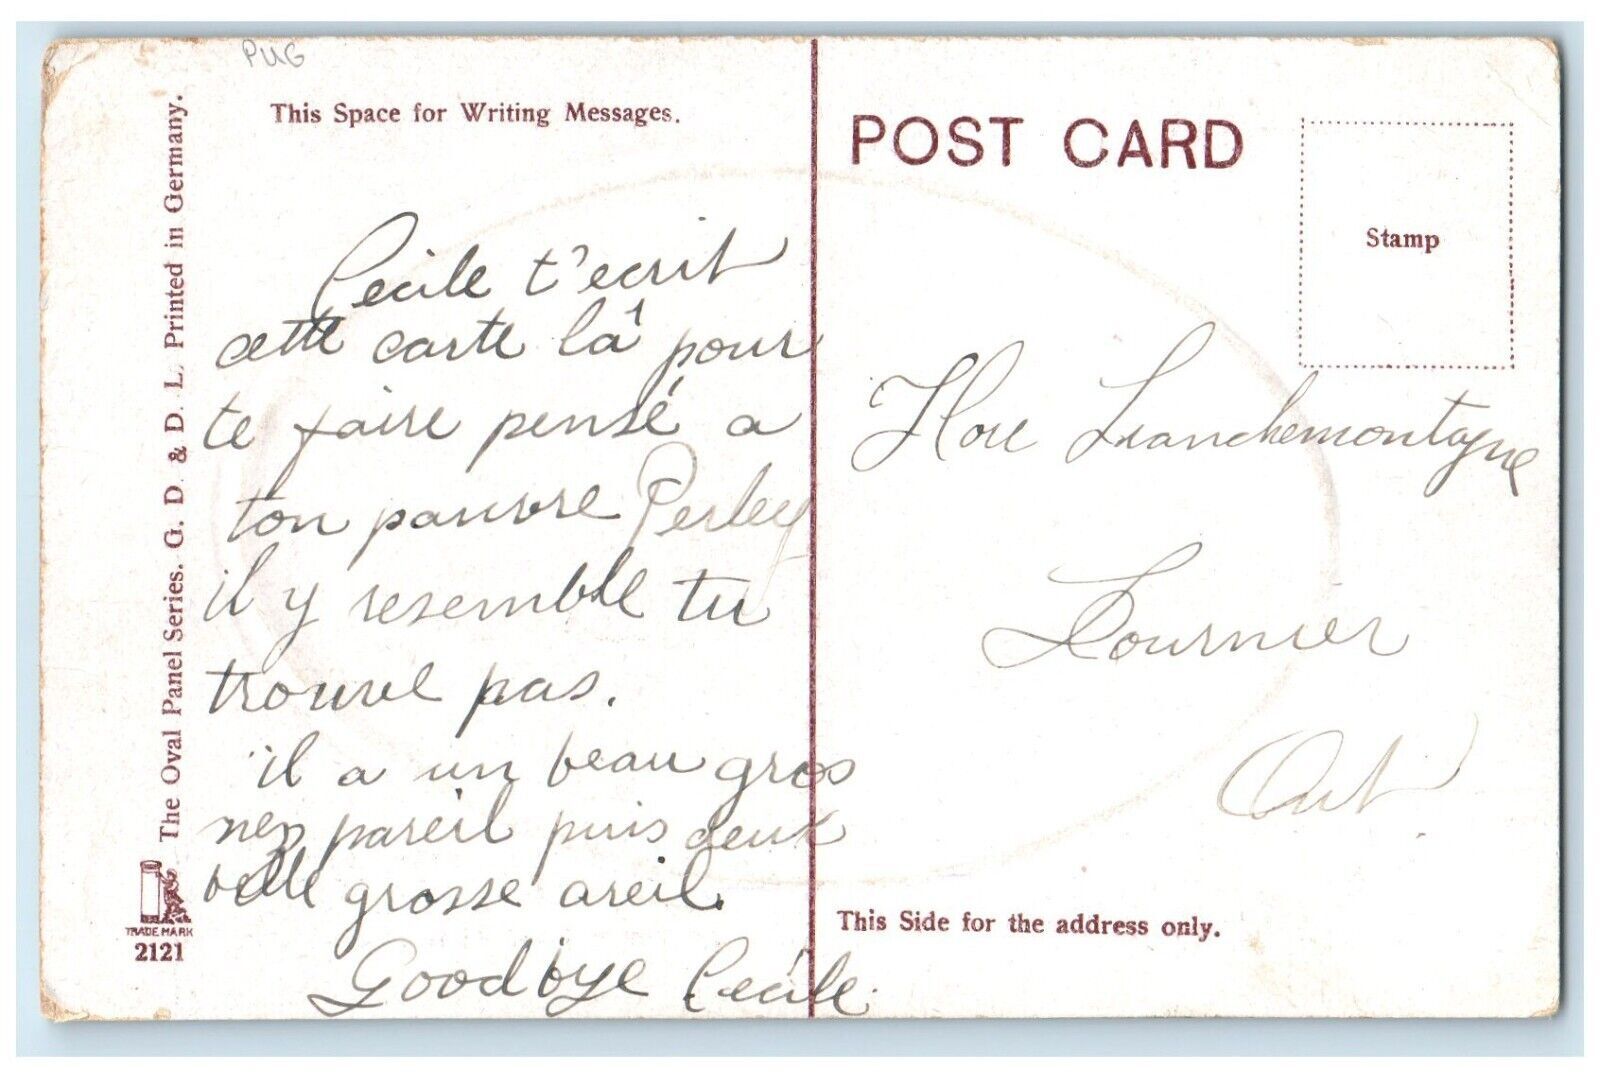 PUG
This Space for Writing Messages.
Cecile t'ecrit
cette carte là pour
te faire pensé a
ton pauvre Perley
il y resemble tu
trouve pas.
il a un beau gros
nez pareil puis deux
belle grosse areil.
Goodbye Cécile.
The Oval Panel Series. G. D. & D. L. Printed in Germany.
TRADE MARK
2121
POST CARD
Stamp
Flore Franchemontagne
Fournier
Ont.
This Side for the address only.